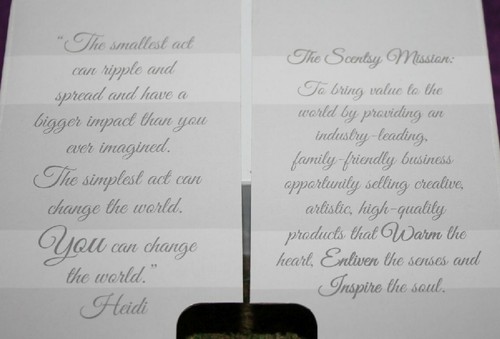 “The smallest act
can ripple and
spread and have a
bigger impact than you
ever imagined.
The simplest act can
change the world.
You can change
the world.”
Heidi
The Scentsy Mission:
To bring value to the
world by providing an
industry-leading,
family-friendly business
opportunity selling creative,
artistic, high-quality
products that Warm the
heart, Enliven the senses and
Inspire the soul.